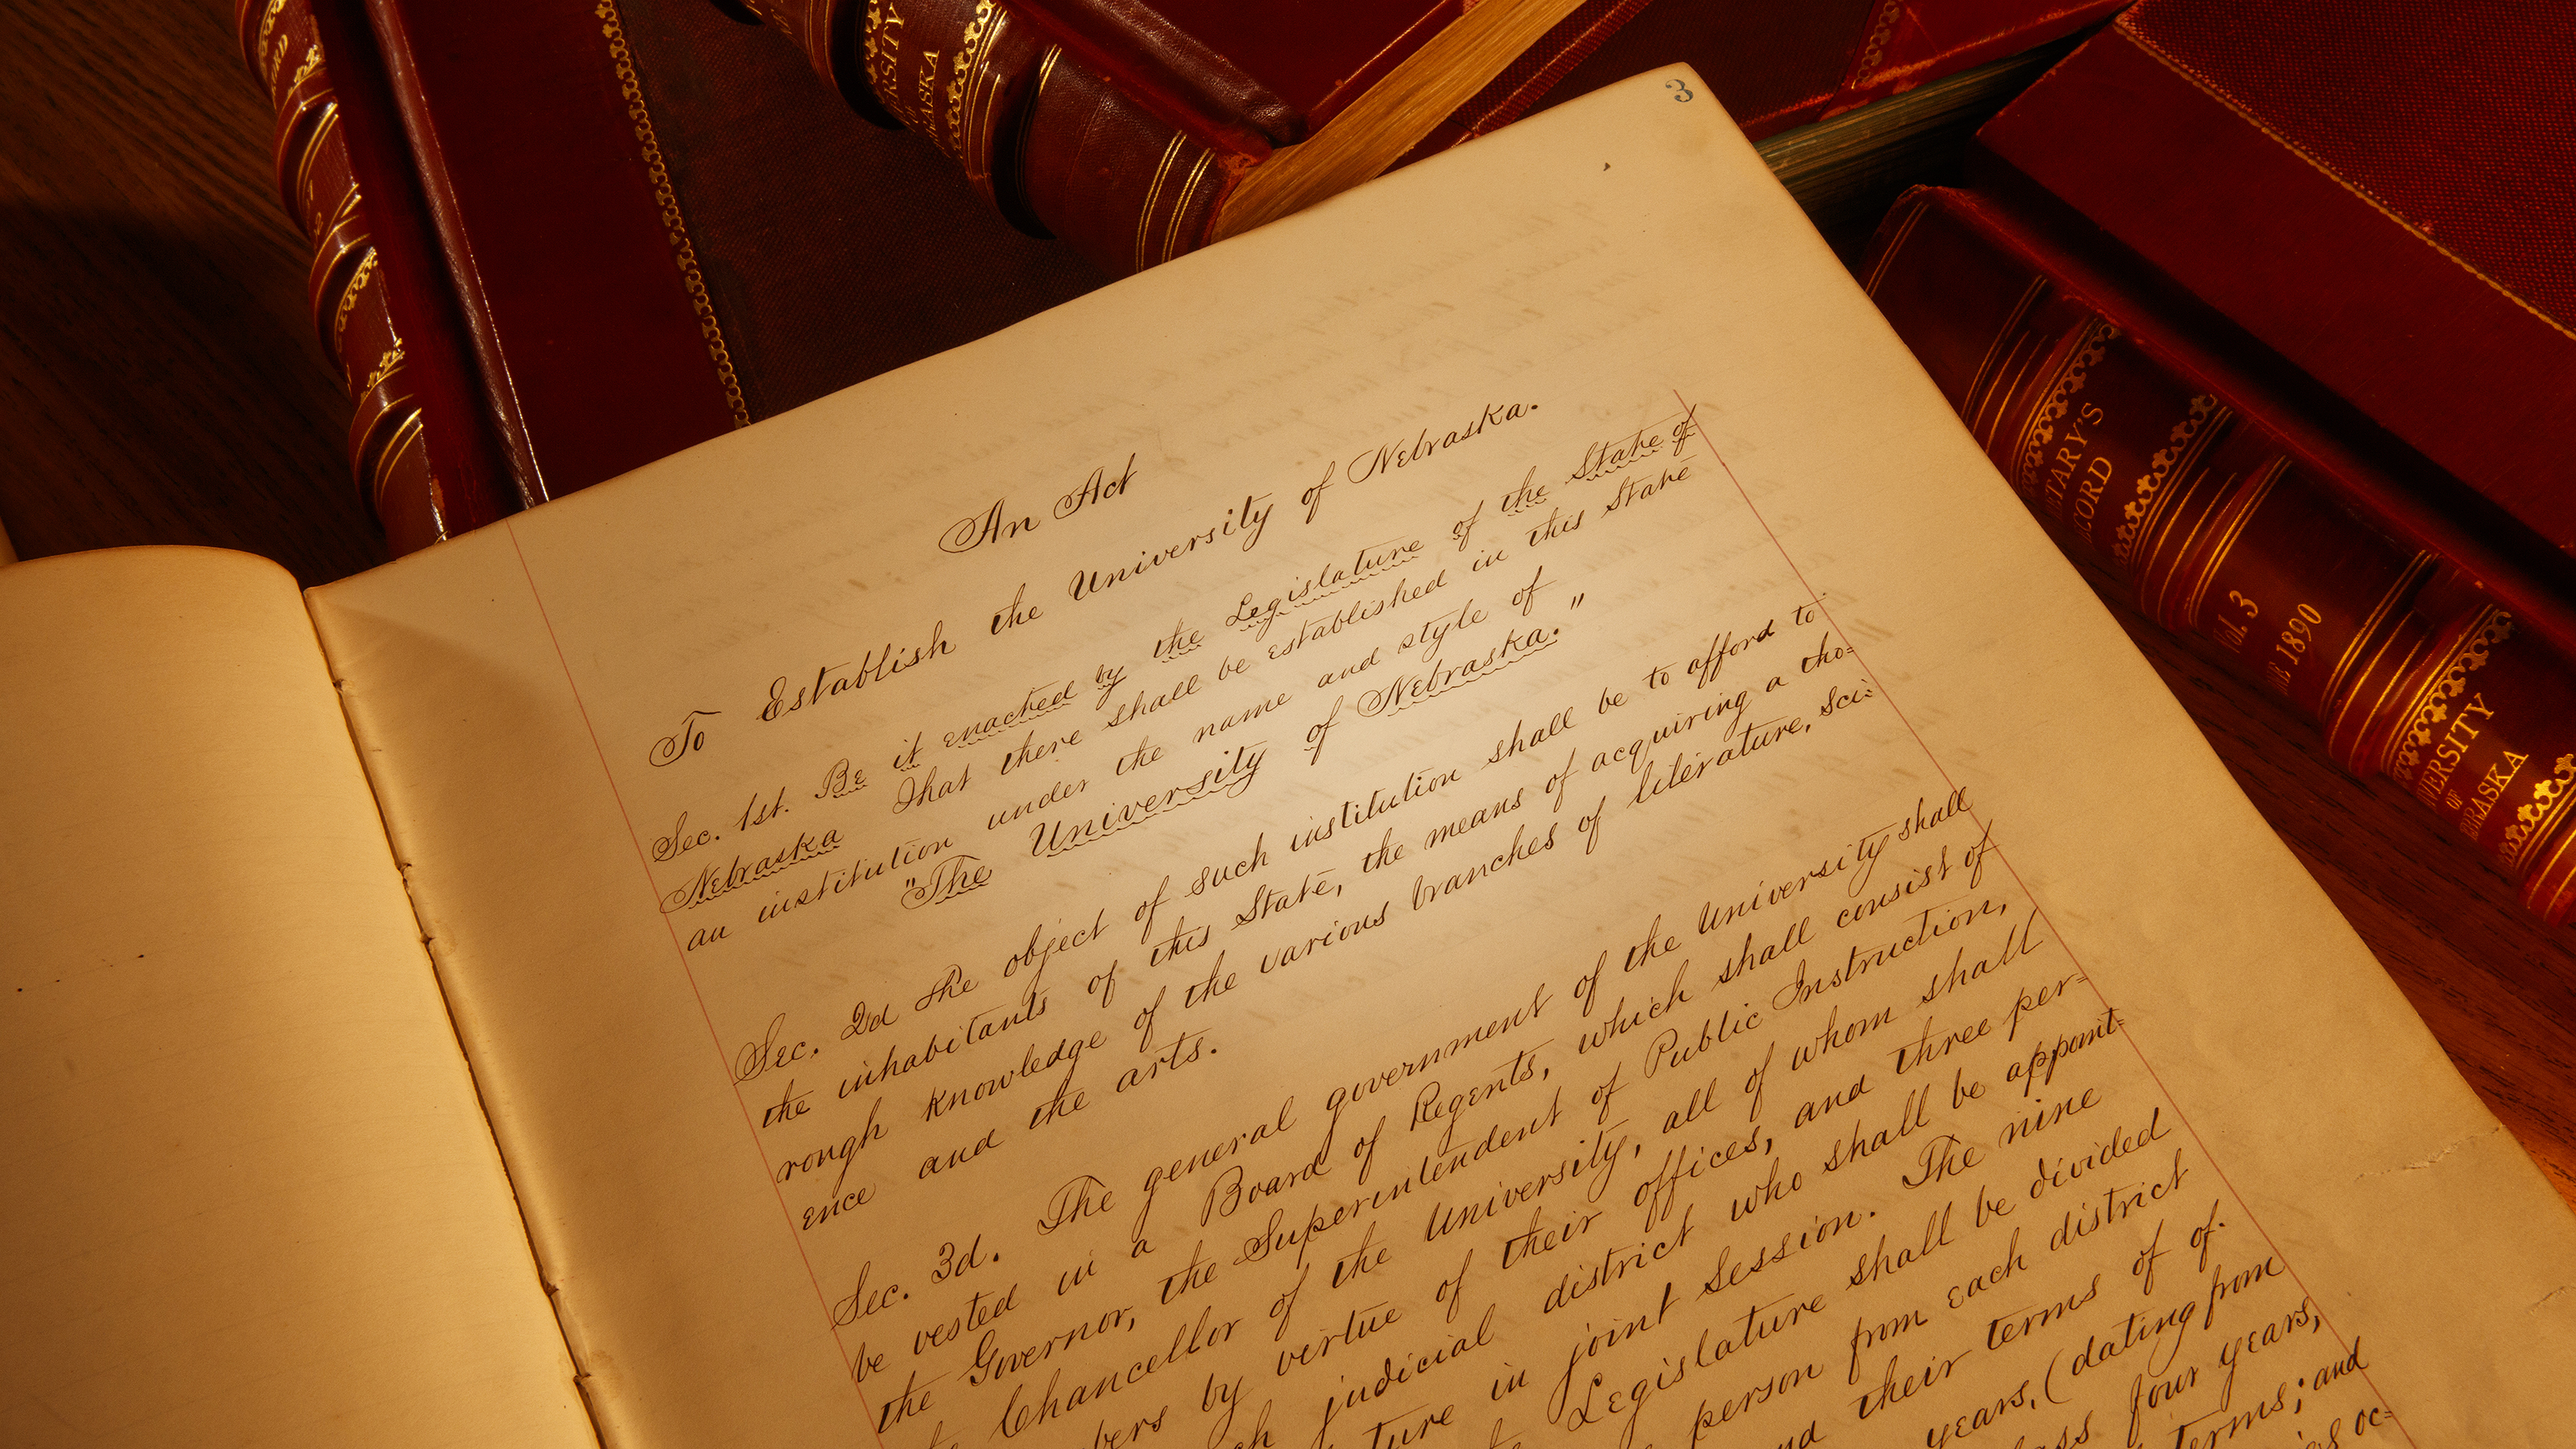 3
An Act
To Establish the University of Nebraska.
Sec. 1st. Be it enacted by the Legislature of the State of
Nebraska That there shall be established in this State
an institution under the name and style of
"The University of Nebraska."
Sec. 2d The object of such institution shall be to afford to
the inhabitants of this State, the means of acquiring a tho=
rough knowledge of the various branches of literature, sci=
ence and the arts.
Sec. 3d. The general government of the University shall
be vested in a Board of Regents, which shall consist of
the Governor, the Superintendent of Public Instruction,
Chancellor of the University, all of whom shall
bers by virtue of their offices, and three per=
ch judicial district who shall be appoint=
ture in joint Session. The nine
Legislature shall be divided
person from each district
nd their terms of of.
years, (dating from
ass four years,
terms; and
oc=
ERSITY
ASKA
TARY'S
CORD
Vol. 3
E 1890
VERSITY
OF
EBRASKA